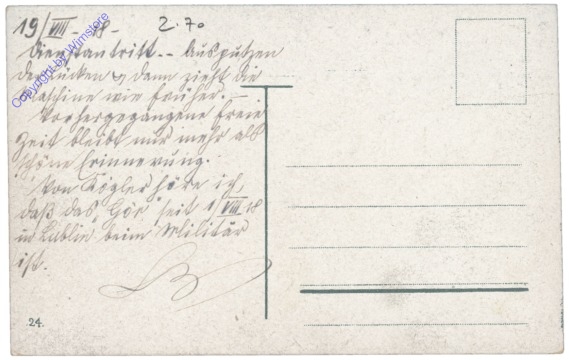 19/VIII. 18. 2.70
Dienstantritt. -- Ausputzen
der Lücken & dann zieht die
Maschine wie früher. —
Vorhergegangene freie
Zeit bleibt nur mehr als
schöne Erinnerung.
Von Kögler höre ich,
daß das "Gör" seit 1/VIII. 18
in Lublin beim Militär
ist.
24.
Copyright by Wimstore